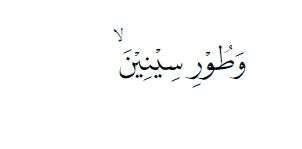 وَطُوۡرِ سِيۡنِيۡنَۙ‏